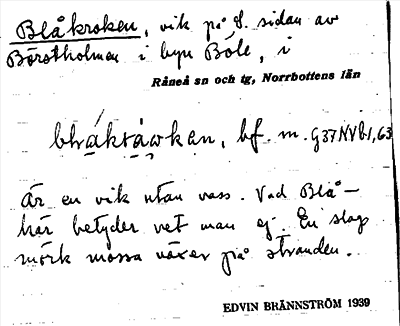 Blåkroken, vik på S. sidan av
Börstholmen i byn Böle, i
Råneå sn och tg, Norrbottens län
bf. m.
Är en vik utan vass. Vad Blå-
här betyder vet man ej. En slags
mörk mossa växer på stranden.
EDVIN BRÄNNSTRÖM 1939